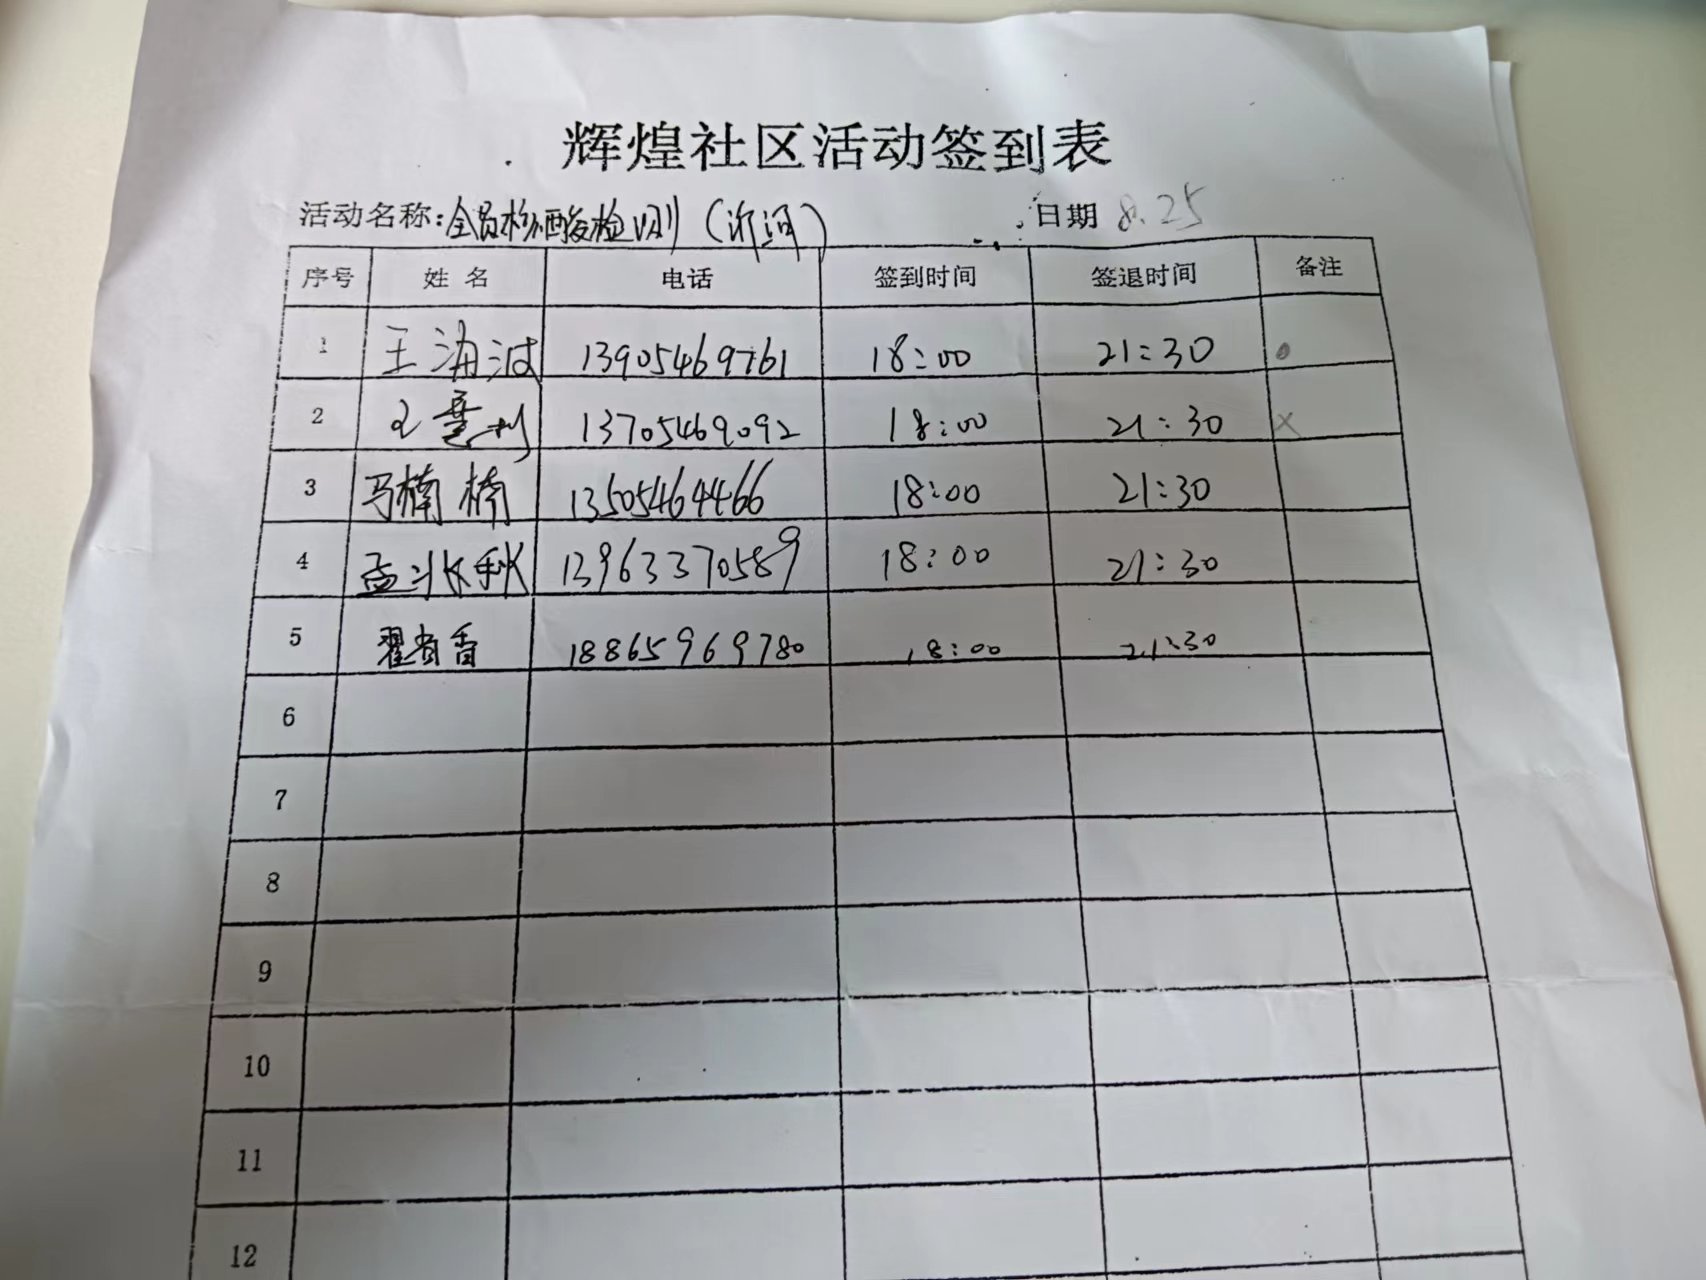 辉煌社区活动签到表
活动名称:全员核酸检测(沂河) 日期 8.25
序号 姓名 电话 签到时间 签退时间 备注
1 王海波 13905469761 18:00 21:30
2 王 13705469092 18:00 21:30 ×
3 马楠楠 13505464466 18:00 21:30
4 孟 秋 13963370589 18:00 21:30
5 翟 香 18865969780 18:00 21:30
6
7
8
9
10
11
12